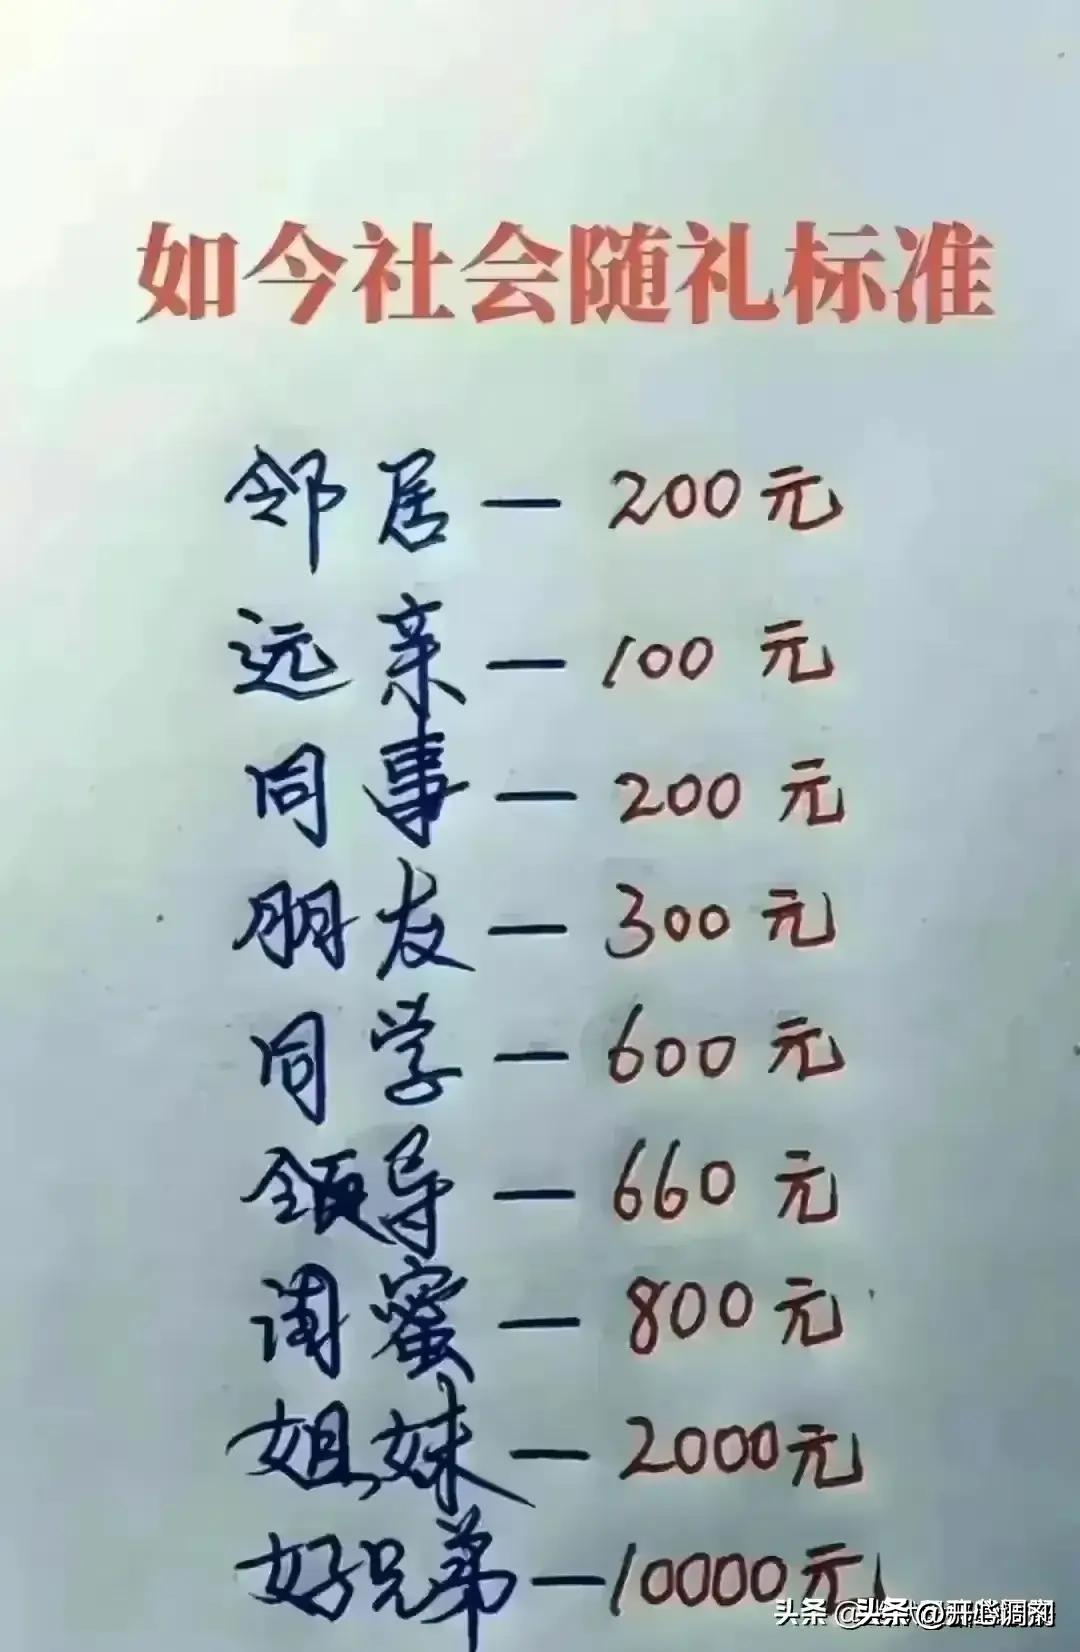 如今社会随礼标准
邻居—200元
远亲—100元
同事—200元
朋友—300元
同学—600元
领导—660元
闺蜜—800元
姐妹—2000元
好兄弟—10000元
头条 @开心调剂